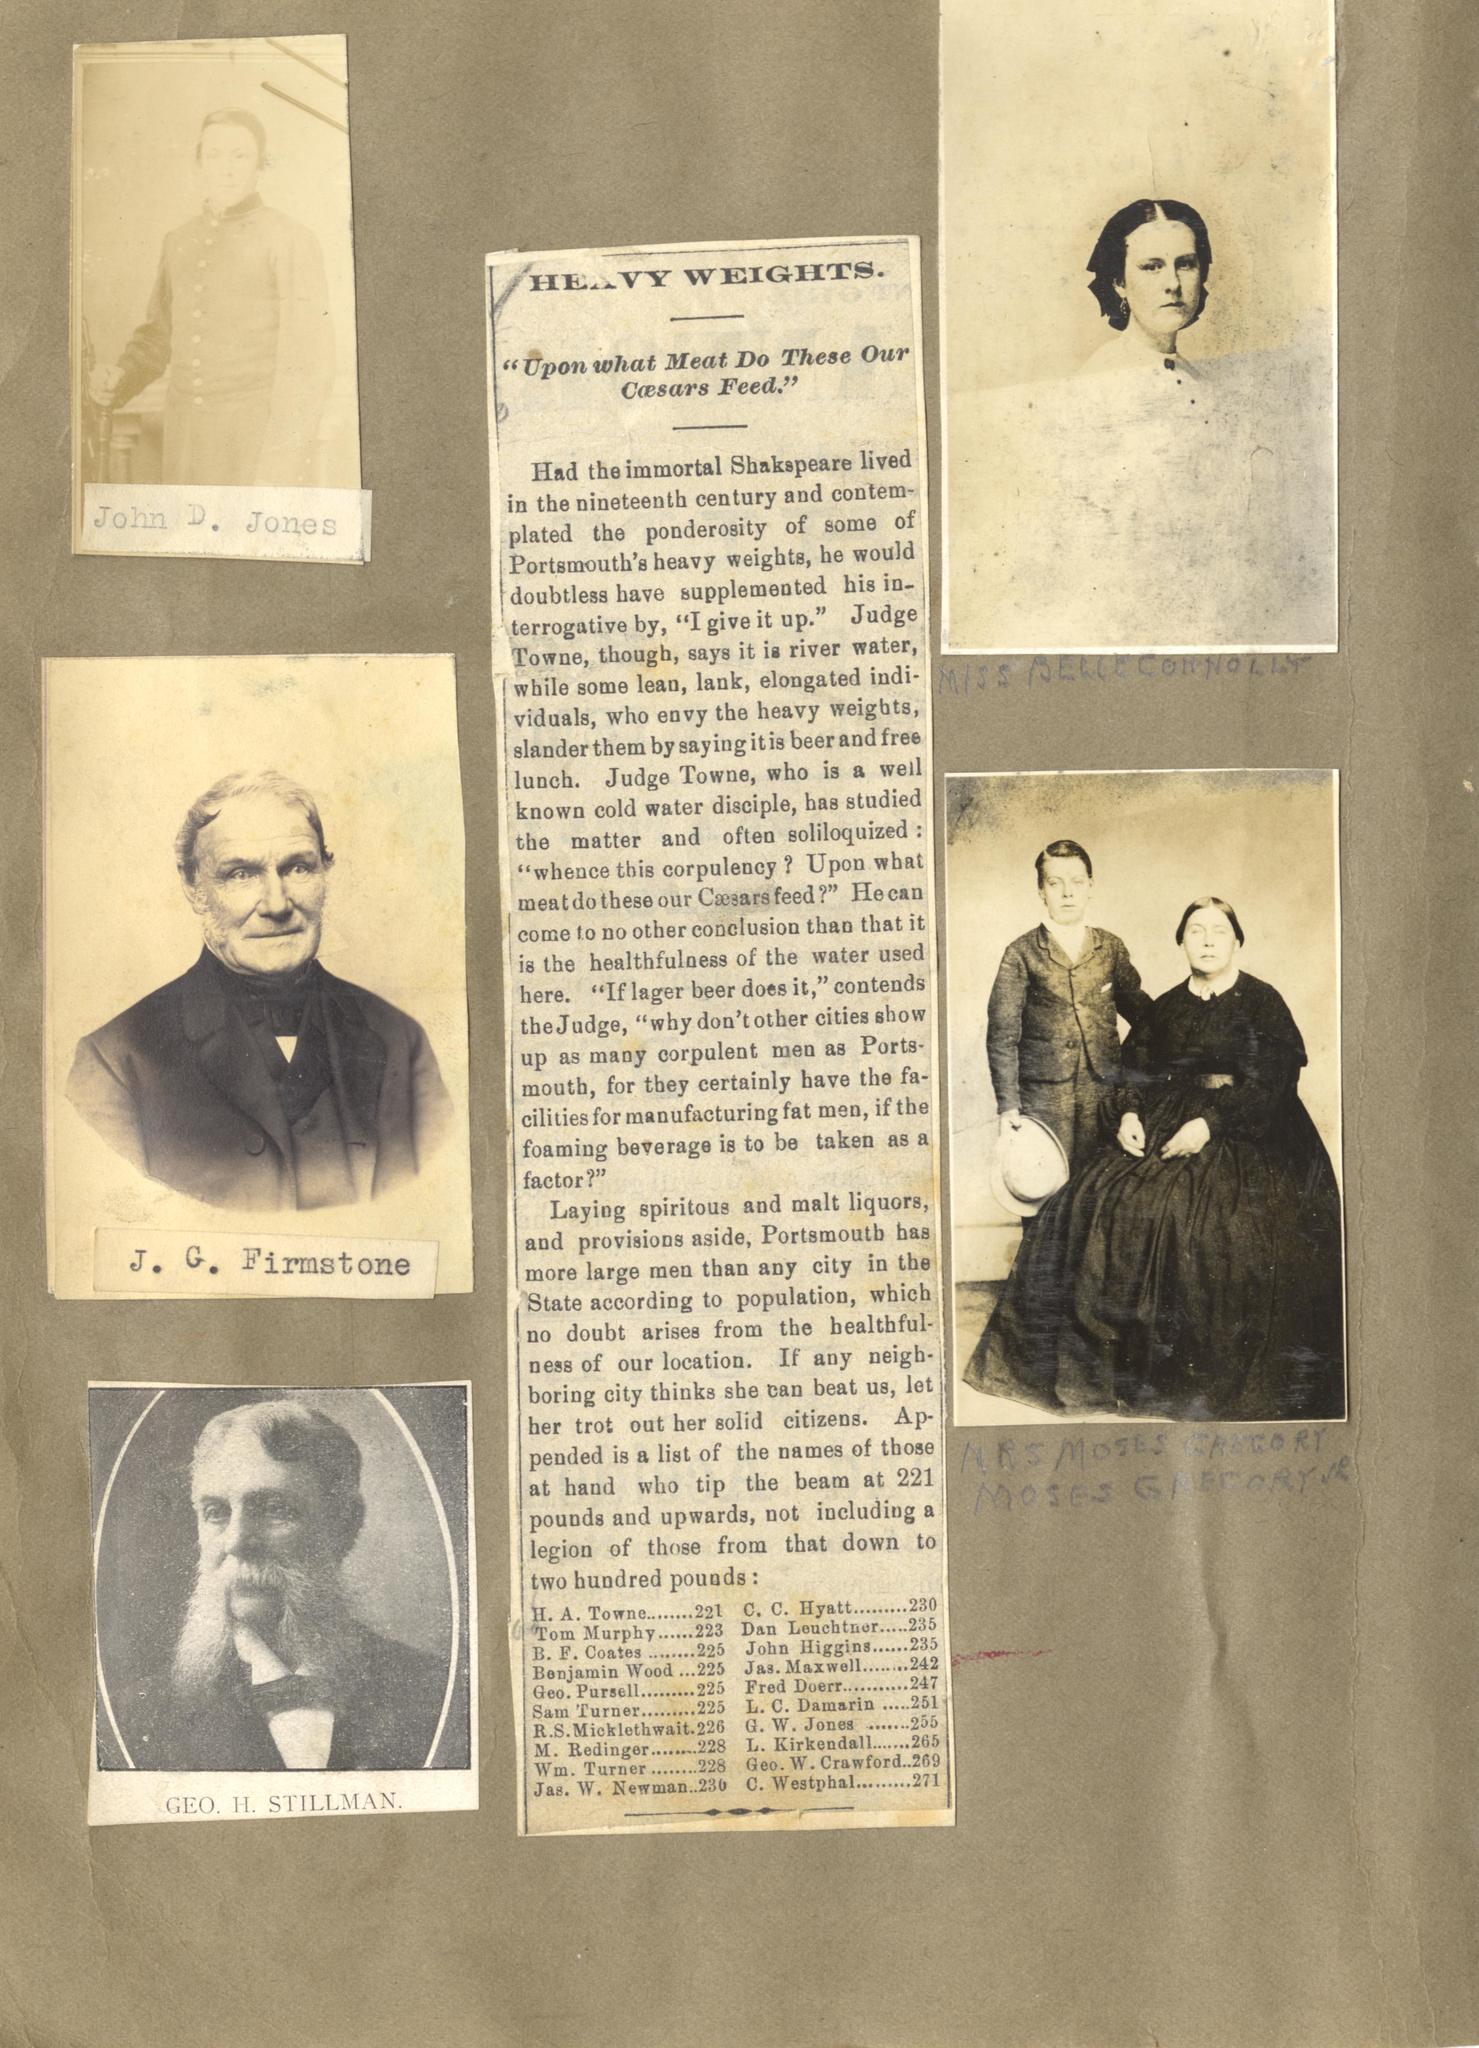 John D. Jones
J. G. Firmstone
GEO. H. STILLMAN.
HEAVY WEIGHTS.
“Upon what Meat Do These Our
Cæsars Feed.”
Had the immortal Shakspeare lived
in the nineteenth century and contem-
plated the ponderosity of some of
Portsmouth's heavy weights, he would
doubtless have supplemented his in-
terrogative by, “I give it up.” Judge
Towne, though, says it is river water,
while some lean, lank, elongated indi-
viduals, who envy the heavy weights,
slander them by saying it is beer and free
lunch. Judge Towne, who is a well
known cold water disciple, has studied
the matter and often soliloquized:
“whence this corpulency? Upon what
meat do these our Cæsars feed?” He can
come to no other conclusion than that it
is the healthfulness of the water used
here. “If lager beer does it,” contends
the Judge, “why don't other cities show
up as many corpulent men as Ports-
mouth, for they certainly have the fa-
cilities for manufacturing fat men, if the
foaming beverage is to be taken as a
factor?”
Laying spiritous and malt liquors,
and provisions aside, Portsmouth has
more large men than any city in the
State according to population, which
no doubt arises from the healthful-
ness of our location. If any neigh-
boring city thinks she can beat us, let
her trot out her solid citizens. Ap-
pended is a list of the names of those
at hand who tip the beam at 221
pounds and upwards, not including a
legion of those from that down to
two hundred pounds:
H. A. Towne........221 C. C. Hyatt.........230
Tom Murphy......223 Dan Leuchtner.....235
B. F. Coates ........225 John Higgins......235
Benjamin Wood ...225 Jas. Maxwell........242
Geo. Pursell.........225 Fred Doerr...........247
Sam Turner.........225 L. C. Damarin .....251
R.S.Micklethwait.226 G. W. Jones .......255
M. Redinger........228 L. Kirkendall.......265
Wm. Turner ........228 Geo. W. Crawford..269
Jas. W. Newman..230 C. Westphal.........271
MISS BELLE CONNOLLY
MRS MOSES GREGORY
MOSES GREGORY JR